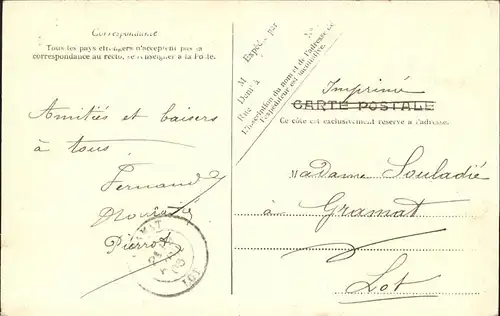 Correspondance
Tous les pays étrangers n'acceptent pas la
correspondance au recto, se renseigner à la Poste.
Amitiés et baisers
à tous
Fernand
Pierrot
LOT
Expédié par
M
Dem^t à
Rue N°
L'inscription du nom et de l'adresse de
l'expéditeur est facultative.
Imprimé
CARTE POSTALE
Ce côté est exclusivement réservé à l'adresse.
Madame Souladié
à Gramat
Lot